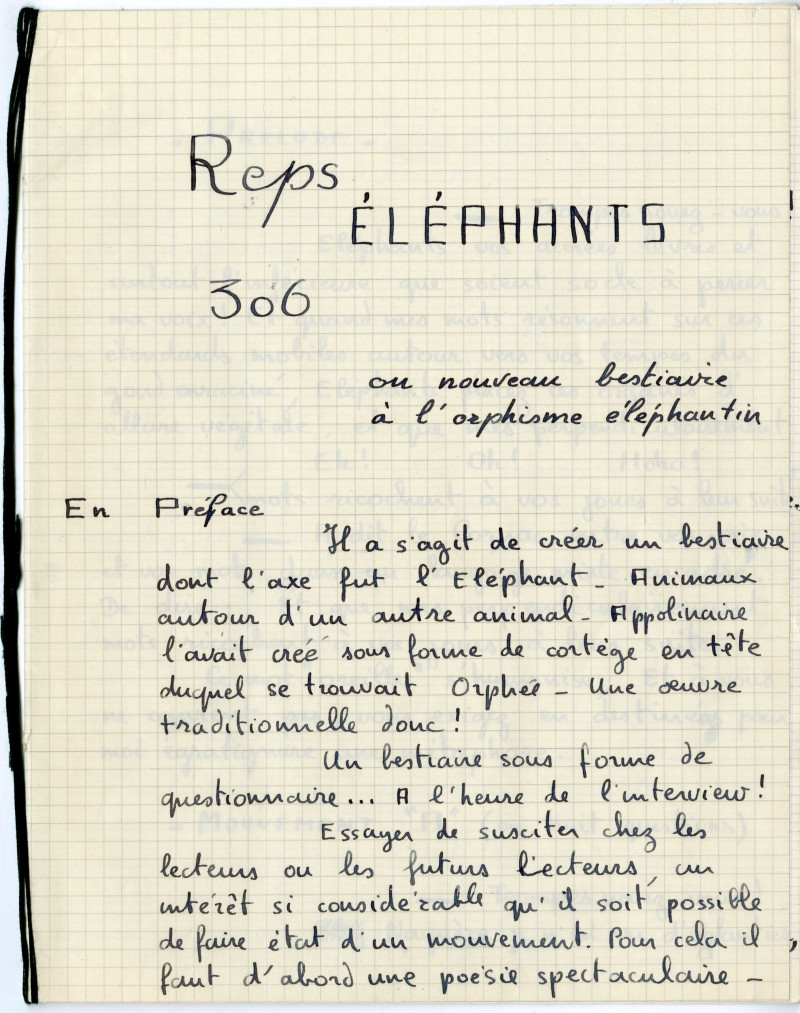 Reps
ÉLÉPHANTS
306
ou nouveau bestiaire
à l'orphisme éléphantin
En Préface
Il a s'agit de créer un bestiaire
dont l'axe fut l'Eléphant_ Animaux
autour d'un autre animal_ Appolinaire
l'avait créé sous forme de cortège en tête
duquel se trouvait Orphée _ Une œuvre
traditionnelle donc !
Un bestiaire sous forme de
questionnaire... A l'heure de l'interview !
Essayer de susciter chez les
lecteurs ou les futurs lecteurs, un
intérêt si considérable qu'il soit possible
de faire état d'un mouvement. Pour cela il
faut d'abord une poésie spectaculaire _